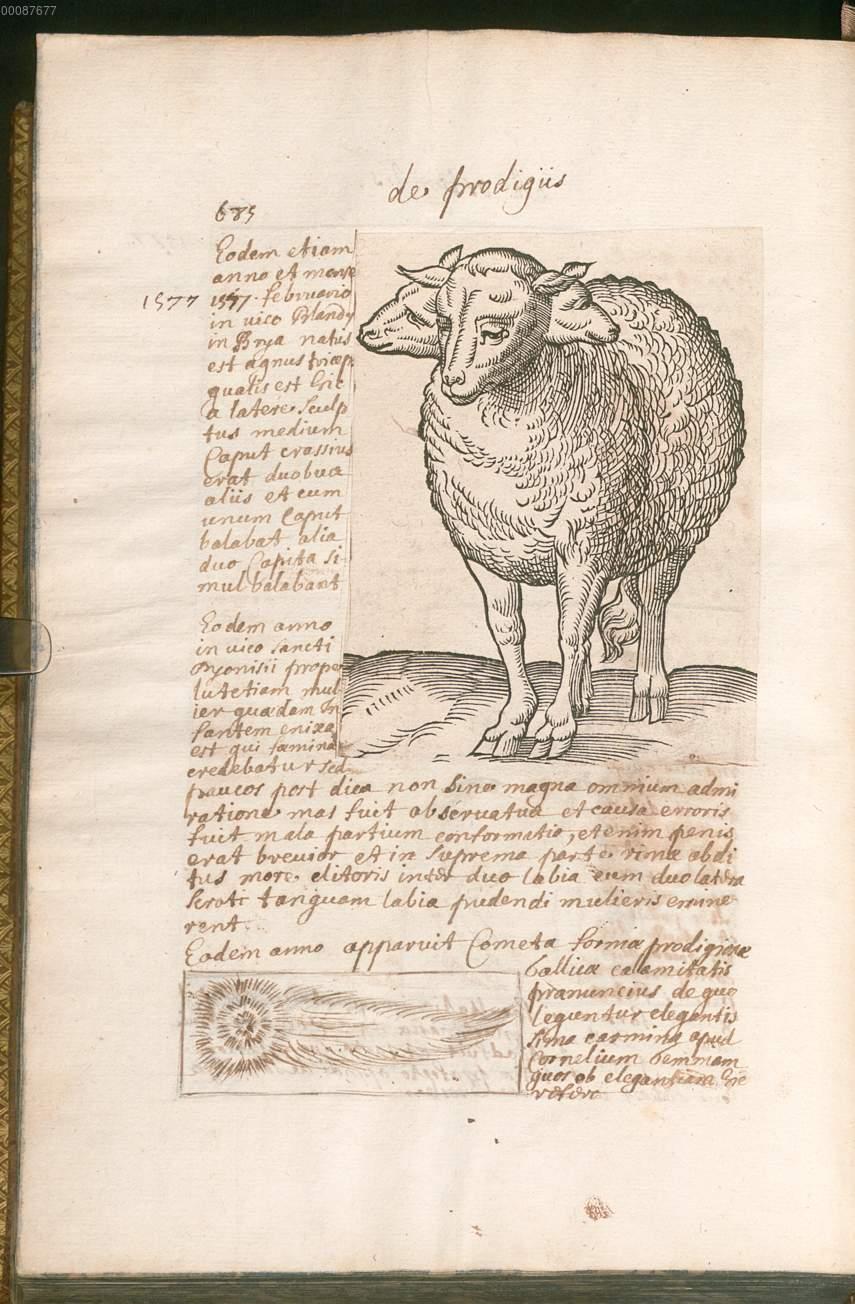 00087677
de prodigiis
685
Eodem etiam
anno et mense
1577
1577. februario
in vico Blandy
in Brya natus
est agnus tricep
qualis est hic
a latere sculp
tus medium
Caput crassius
erat duobus
aliis et cum
unum Caput
balabat alia
duo Capita si-
mul balabant
Eodem anno
in vico sancti
Dyonisii prope
lutetiam mul
ier quædam in
fantem enixa
est qui fæmina
credebatur sed
paucos post dies non sine magna omnium admi
ratione mas fuit observatus et causa erroris
fuit mala partium conformatio, etenim penis
erat brevior et in suprema parte rimæ abdi
tus more clitoris inter duo labia cum duo latera
scroti tanquam labia pudendi mulieris emine
rent
Eodem anno apparuit Cometa formæ prodigiosæ
Gallicæ calamitatis
prænuncius de quo
leguntur elegantis
sima carmina apud
Cornelium Gemmam
quos ob elegantiam